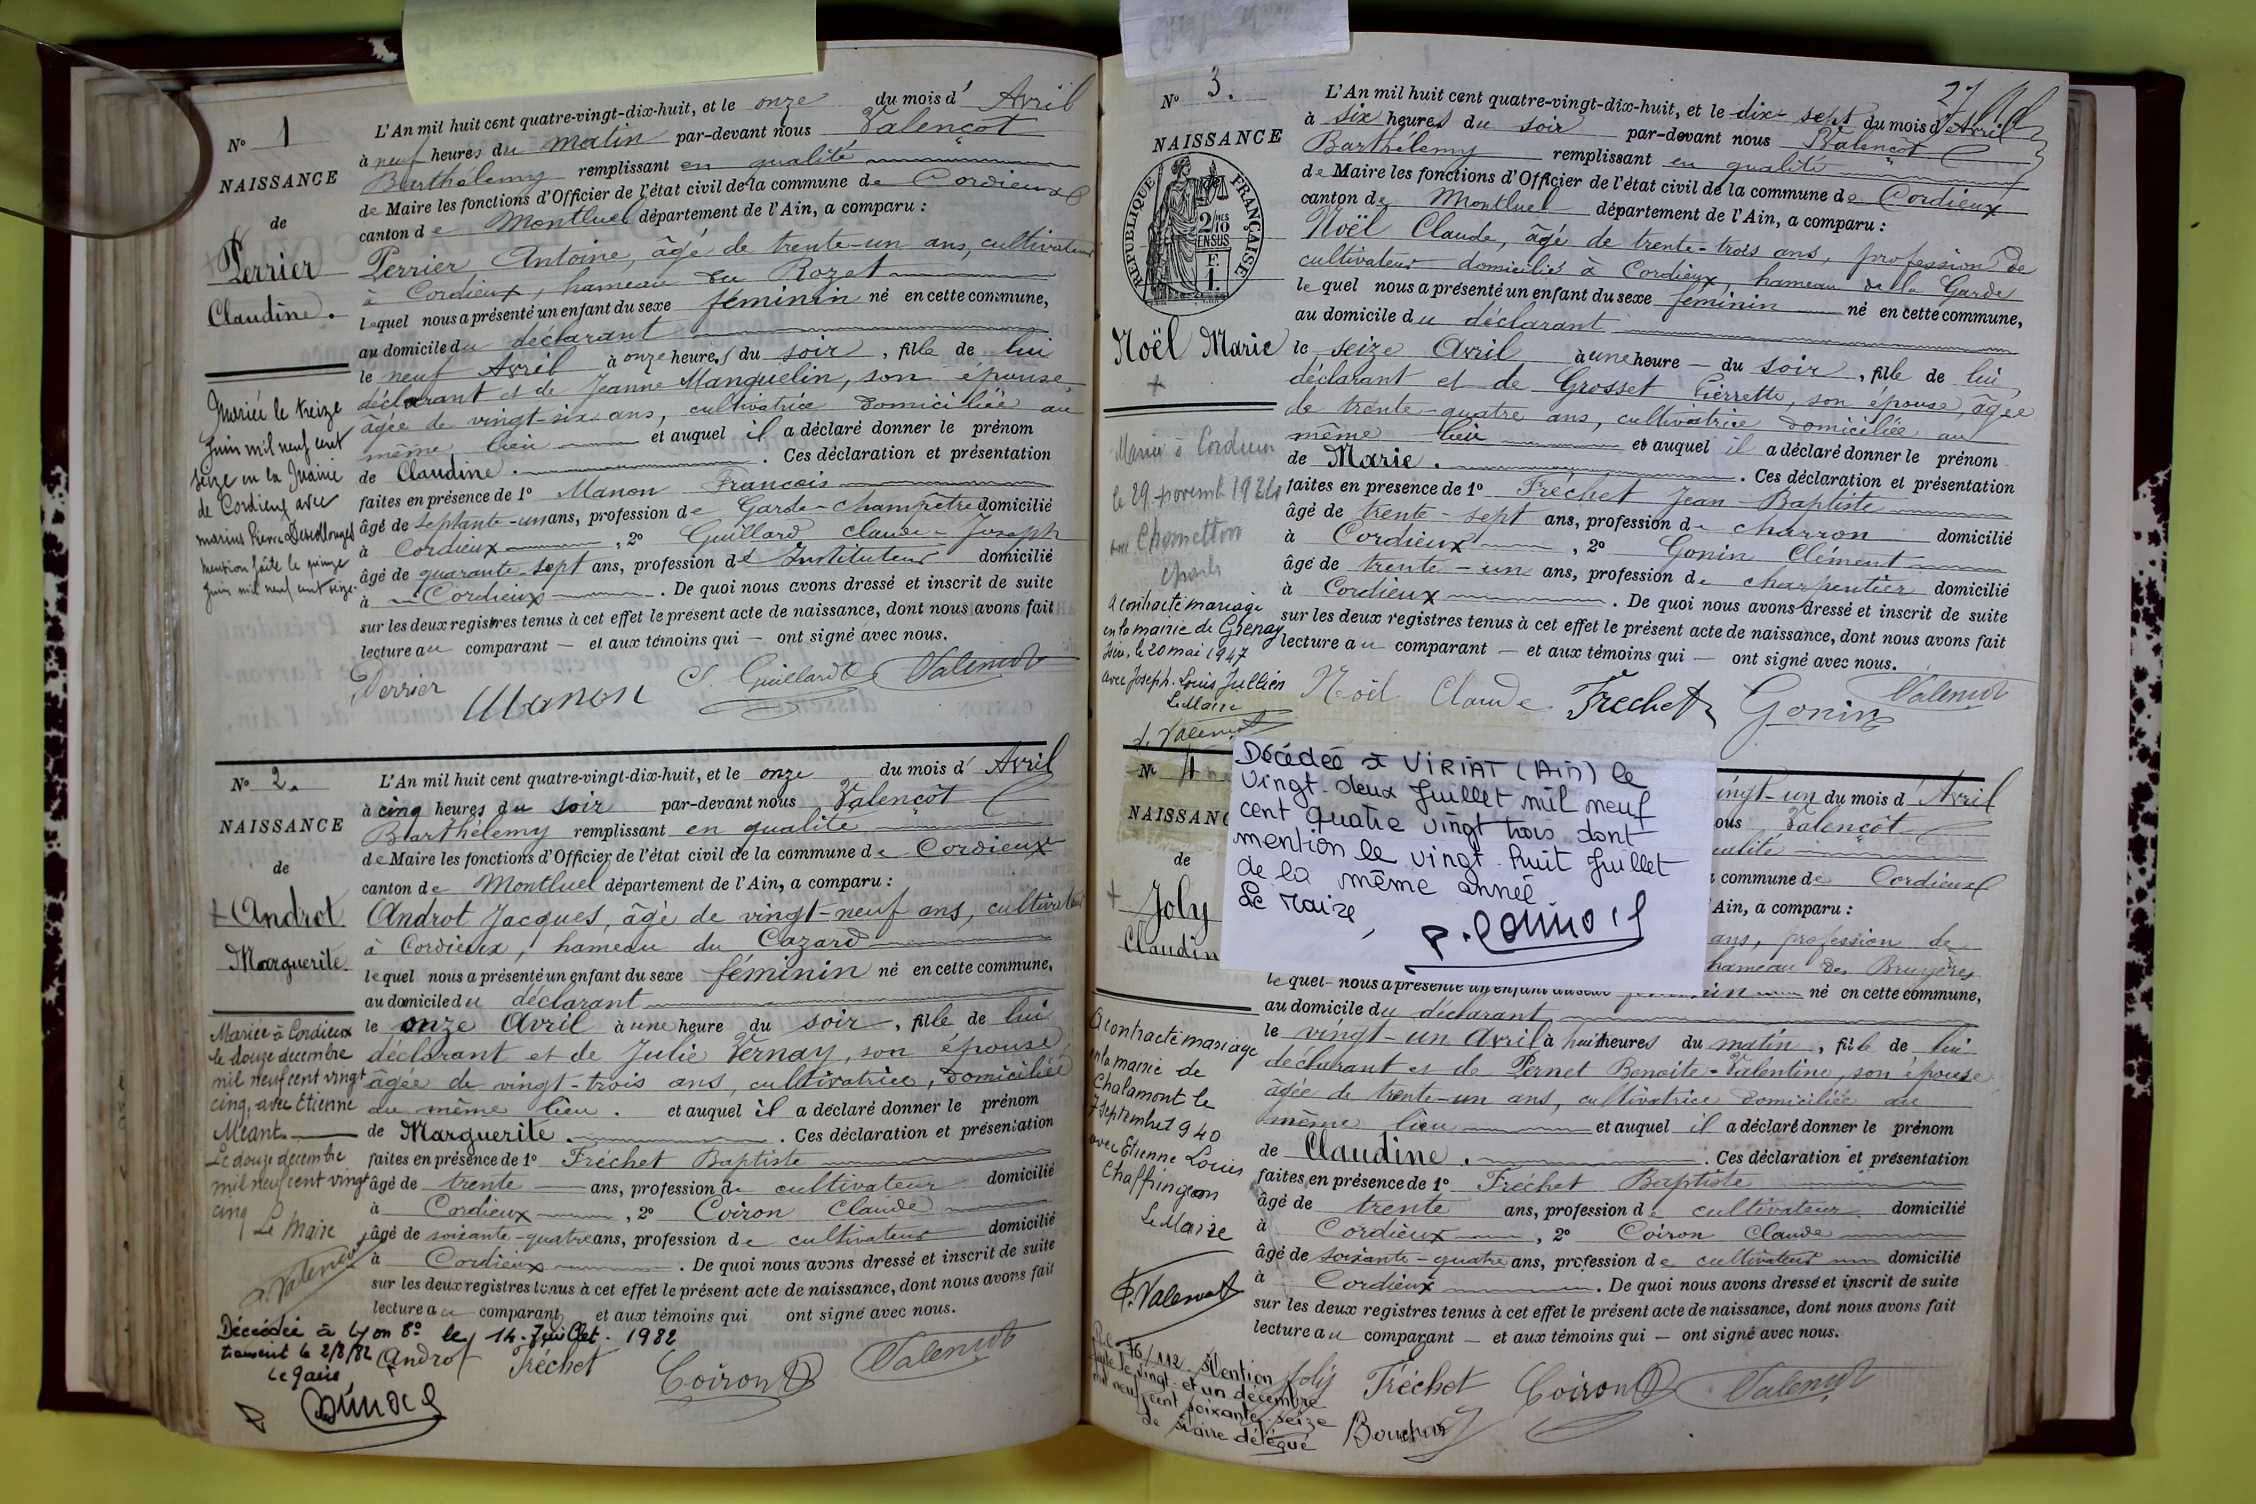 N° 1
NAISSANCE
de
Perrier
Claudine.
Mariée le treize
Juin mil neuf cent
seize en la Mairie
de Cordieux avec
mention faite le quinze
Juin mil neuf cent seize.
L'An mil huit cent quatre-vingt-dix-huit, et le onze du mois d' Avril
à neuf heures du matin par-devant nous Valençot
Barthélemy remplissant en qualité
de Maire les fonctions d'Officier de l'état civil de la commune de Cordieux
canton de Montluel département de l'Ain, a comparu :
Perrier Antoine, âgé de trente-un ans, cultivateur
à Cordieux, hameau du Rozet
lequel nous a présenté un enfant du sexe féminin né en cette commune,
au domicile du déclarant
le neuf Avril à onze heures du soir, fille de lui
déclarant et de Jeanne Manquelin, son épouse,
âgée de vingt-six ans, cultivatrice domiciliée au
même lieu et auquel il a déclaré donner le prénom
de Claudine. Ces déclaration et présentation
faites en présence de 1° Manon Francois
âgé de septante-un ans, profession de Garde-champêtre domicilié
à Cordieux, 2° Guillard Claude-Joseph
âgé de quarante-sept ans, profession d'Instituteur domicilié
à Cordieux. De quoi nous avons dressé et inscrit de suite
sur les deux registres tenus à cet effet le présent acte de naissance, dont nous avons fait
lecture au comparant – et aux témoins qui – ont signé avec nous.
Perrier Manon Guillard Valençot
N° 2.
NAISSANCE
de
+ Androt
Marguerite.
Mariée à Cordieux
le douze décembre
mil neuf cent vingt
cinq, avec Etienne
Méant.
Le douze décembre
mil neuf cent vingt
cinq Le Maire
Valençot
Décédée à Lyon 8° le 14 Juillet 1982
transcrit le 2/8/82
Le Maire,
L'An mil huit cent quatre-vingt-dix-huit, et le onze du mois d' Avril
à cinq heures du soir par-devant nous Valençôt
Barthélemy remplissant en qualité
de Maire les fonctions d'Officier de l'état civil de la commune de Cordieux
canton de Montluel département de l'Ain, a comparu :
Androt Jacques, âgé de vingt-neuf ans, cultivateur
à Cordieux, hameau du Cazard
lequel nous a présenté un enfant du sexe féminin né en cette commune,
au domicile du déclarant
le onze Avril à une heure du soir, fille de lui
déclarant et de Julie Vernay, son épouse,
âgée de vingt-trois ans, cultivatrice, domiciliée
au même lieu. et auquel il a déclaré donner le prénom
de Marguerite. Ces déclaration et présentation
faites en présence de 1° Fréchet Baptiste
âgé de trente ans, profession de cultivateur domicilié
à Cordieux, 2° Coiron Claude
âgé de soixante-quatre ans, profession de cultivateur domicilié
à Cordieux. De quoi nous avons dressé et inscrit de suite
sur les deux registres tenus à cet effet le présent acte de naissance, dont nous avons fait
lecture au comparant et aux témoins qui ont signé avec nous.
Androt Fréchet Coiron Valençot
27
N° 3.
NAISSANCE
RÉPUBLIQUE FRANÇAISE
2/10 EN SUS
F. 1.
Noël Marie
+
Mariée à Cordieux
le 29 novemb 1924
avec Chometton
A contracté mariage
en la mairie de Grenay
Isère, le 20 mai 1947
avec Joseph-Louis Jullien
Le Maire
Valençot
L'An mil huit cent quatre-vingt-dix-huit, et le dix-sept du mois d'Avril
à six heures du soir par-devant nous Valençot
Barthélemy remplissant en qualité
de Maire les fonctions d'Officier de l'état civil de la commune de Cordieux
canton de Montluel département de l'Ain, a comparu :
Noël Claude, âgé de trente-trois ans, profession de
cultivateur domicilié à Cordieux, hameau de la Garde
lequel nous a présenté un enfant du sexe féminin né en cette commune,
au domicile du déclarant
le seize Avril à une heure – du soir, fille de lui,
déclarant et de Grosset Pierrette, son épouse, âgée
de trente-quatre ans, cultivatrice domiciliée au
même lieu et auquel il a déclaré donner le prénom
de Marie. Ces déclaration et présentation
faites en présence de 1° Fréchet Jean-Baptiste
âgé de trente-sept ans, profession de charron domicilié
à Cordieux, 2° Gonin Clément
âgé de trente-un ans, profession de charpentier domicilié
à Cordieux. De quoi nous avons dressé et inscrit de suite
sur les deux registres tenus à cet effet le présent acte de naissance, dont nous avons fait
lecture au comparant – et aux témoins qui – ont signé avec nous.
Noël Claude Frechet Gonin Valençot
Décédée à VIRIAT (Ain) le
Vingt-deux Juillet mil neuf
cent quatre vingt trois dont
mention le vingt-huit Juillet
de la même année
Le Maire,
N° 4
NAISSANC
de
+ Joly
Claudin
A contracté mariage
en la mairie de
Chalamont le
7 septembre 1940
avec Etienne Louis
Chaffringeon
Le Maire
Valençot
76/112 Mention
faite le vingt-et un décembre
mil neuf cent soixante seize
Maire délégué
ingt-un du mois d' Avril
ous Valençôt
ualité
commune de Cordieux
Ain, a comparu :
ans, profession de
hameau des Bruyères
lequel nous a présenté un enfant du sexe féminin né en cette commune,
au domicile du déclarant
le vingt-un Avril à huit heures du matin, fille de lui
déclarant et de Pernet Benoite-Valentine, son épouse
âgée de trente-un ans, cultivatrice domiciliée au
même lieu et auquel il a déclaré donner le prénom
de Claudine. Ces déclaration et présentation
faites en présence de 1° Fréchet Baptiste
âgé de trente ans, profession de cultivateur domicilié
à Cordieux, 2° Coiron Claude
âgé de soixante-quatre ans, profession de cultivateur domicilié
à Cordieux. De quoi nous avons dressé et inscrit de suite
sur les deux registres tenus à cet effet le présent acte de naissance, dont nous avons fait
lecture au comparant – et aux témoins qui – ont signé avec nous.
Joly Fréchet Coiron Valençot